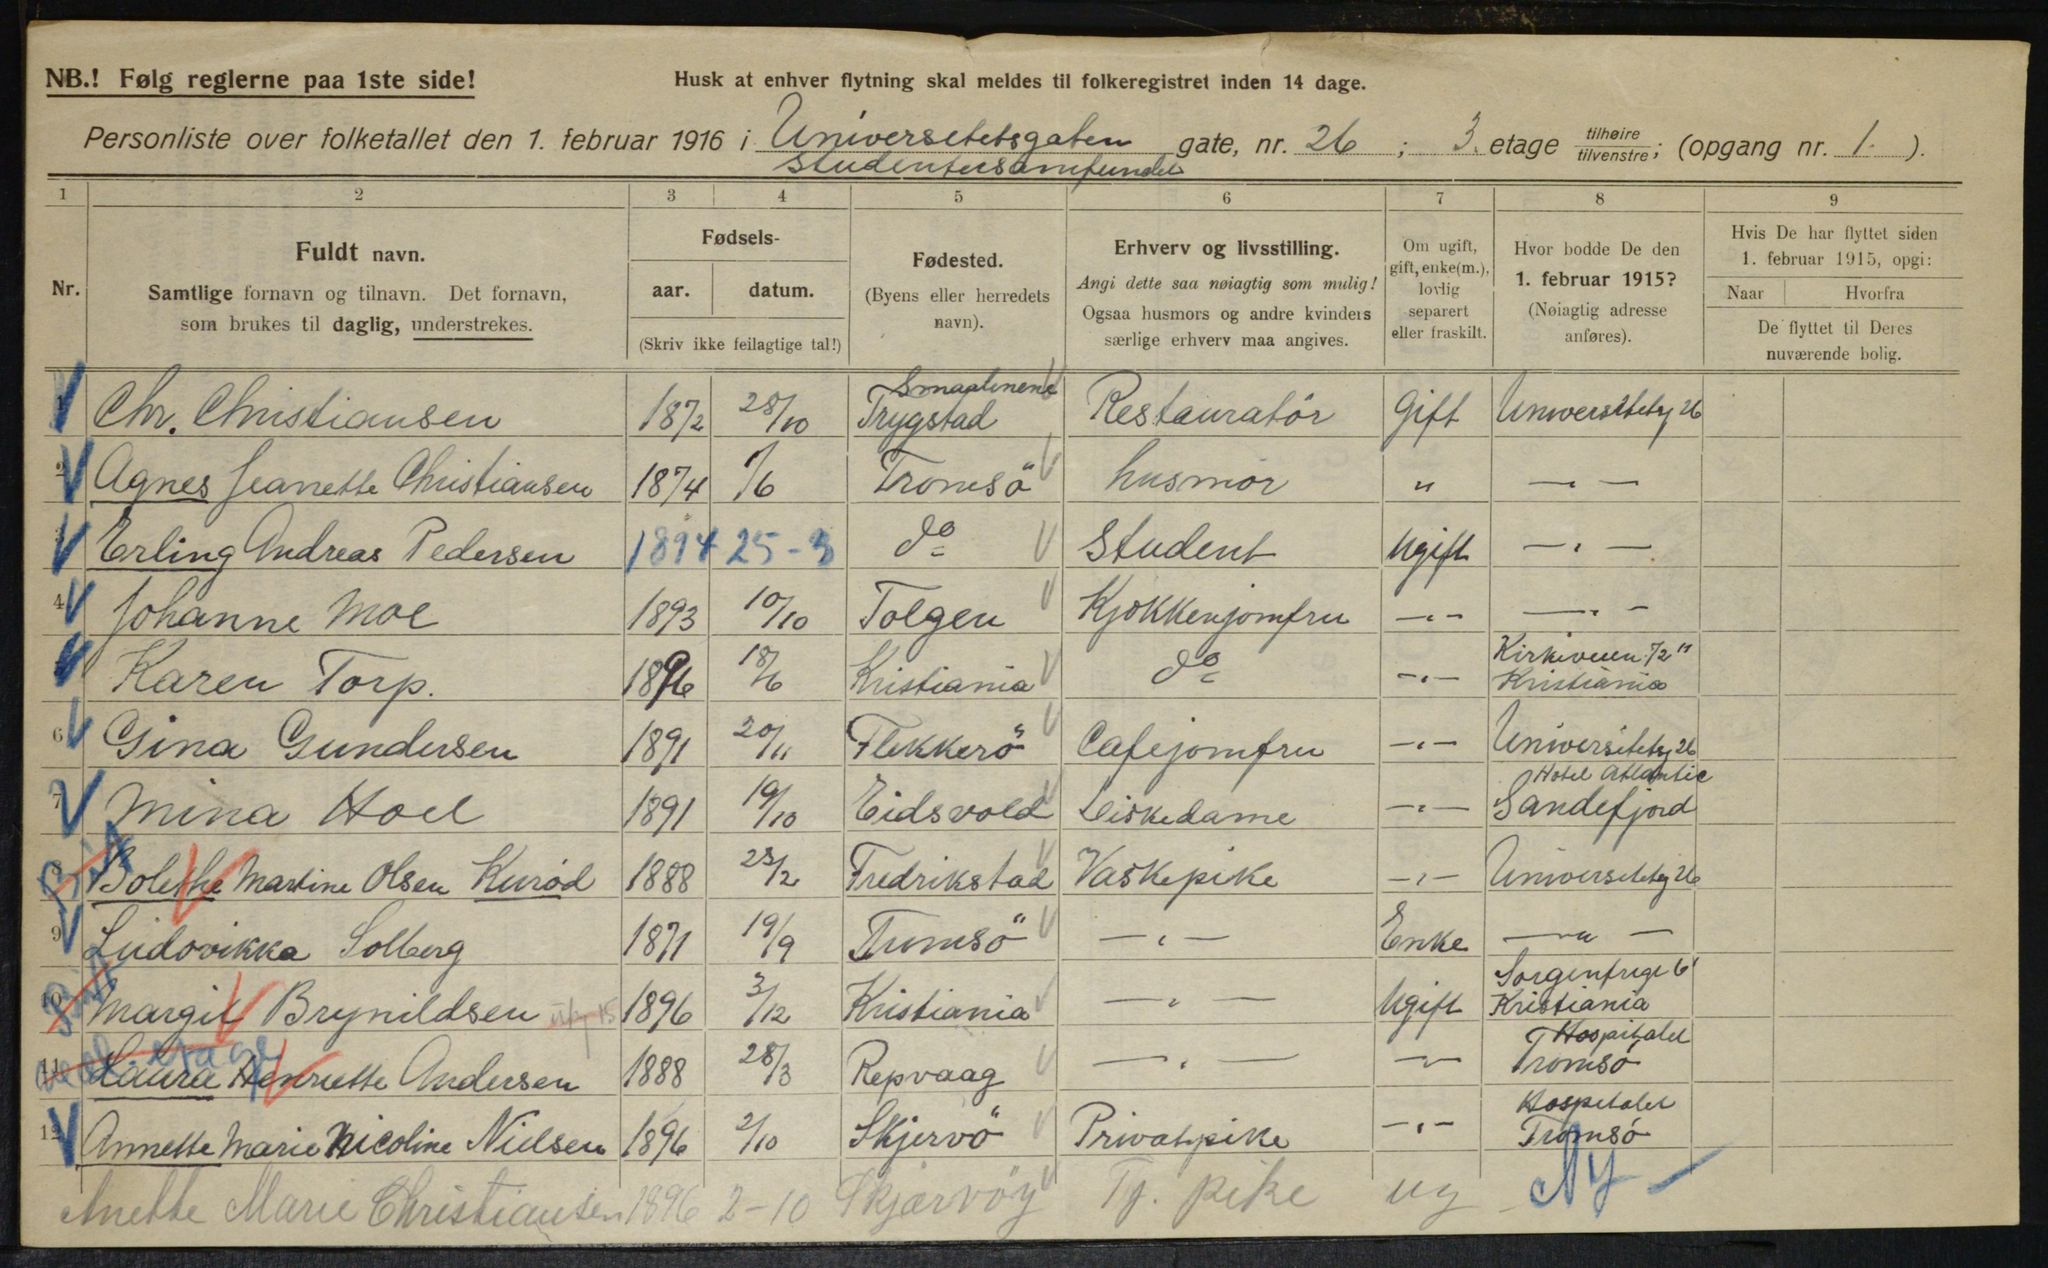 NB.! Følg reglerne paa 1ste side!
Husk at enhver flytning skal meldes til folkeregistret inden 14 dage.
Personliste over folketallet den 1. februar 1916 i Universitetsgaten gate, nr. 26 ; 3. etage tilhøire tilvenstre; (opgang nr. 1. ).
Studentersamfundet
1 2 3 4 5 6 7 8 9
Nr.
Fuldt navn.
Samtlige fornavn og tilnavn. Det fornavn,
som brukes til daglig, understrekes.
Fødsels-
aar. datum.
(Skriv ikke feilagtige tal!)
Fødested.
(Byens eller herredets
navn).
Erhverv og livsstilling.
Angi dette saa nøiagtig som mulig!
Ogsaa husmors og andre kvinders
særlige erhverv maa angives.
Om ugift,
gift, enke(m.),
lovlig
separert
eller fraskilt.
Hvor bodde De den
1. februar 1915?
(Nøiagtig adresse
anføres).
Hvis De har flyttet siden
1. februar 1915, opgi:
Naar Hvorfra
De flyttet til Deres
nuværende bolig.
Smaalenene
1 Chr. Christiansen 1872 28/10 Trygstad Restauratör Gift Universitetsg 26
2 Agnes Jeanette Christiansen 1874 1/6 Tromsö husmor " — " —
3 Erling Andreas Pedersen 1894 25-3 do Student Ugift — " —
4 Johanne Moe 1893 10/10 Tolgen Kjøkkenjomfru — " — — " —
Kirkeveien 72"
5 Karen Torp. 1896 18/6 Kristiania do — " — Kristiania
6 Gina Gundersen 1891 20/11 Flekkerö Cafejomfru — " — Universitetsg 26
Hotel Atlantic
7 Mina Hoel 1891 19/10 Eidsvold Diskedame — " — Sandefjord
8 Bolethe Martine Olsen Kuröd 1888 23/2 Fredrikstad Vaskepike — " — Universitetsg 26
9 Ludovikka Solberg 1871 19/9 Tromsö — " — Enke — " —
Sorgenfrigt 6'
10 Margit Brynildsen 1896 3/12 Kristiania — " — Ugift Kristiania
Hospitalet
11 Laura Henriette Andersen 1888 28/3 Repvaag — " — — " — Tromsö
Hospitalet
12 Annette Marie Nicoline Nielsen 1896 2/10 Skjervö Privatpike — " — Tromsö
Ny —
Anette Marie Christiansen 1896 2-10 Skjærvöy Tj. pike ug